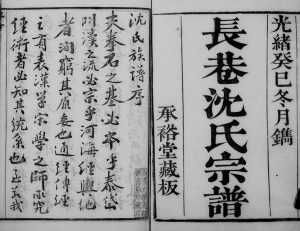 光緒癸巳冬月鐫
長巷沈氏宗譜
承裕堂藏板
沈氏族譜序
夫拳石之基必岑乎泰岱
涓漢之流必宗乎河海經輿地
者詢窮其原委也通經傳經
之有表漢學宗學之師承究
經術者必知其統系也